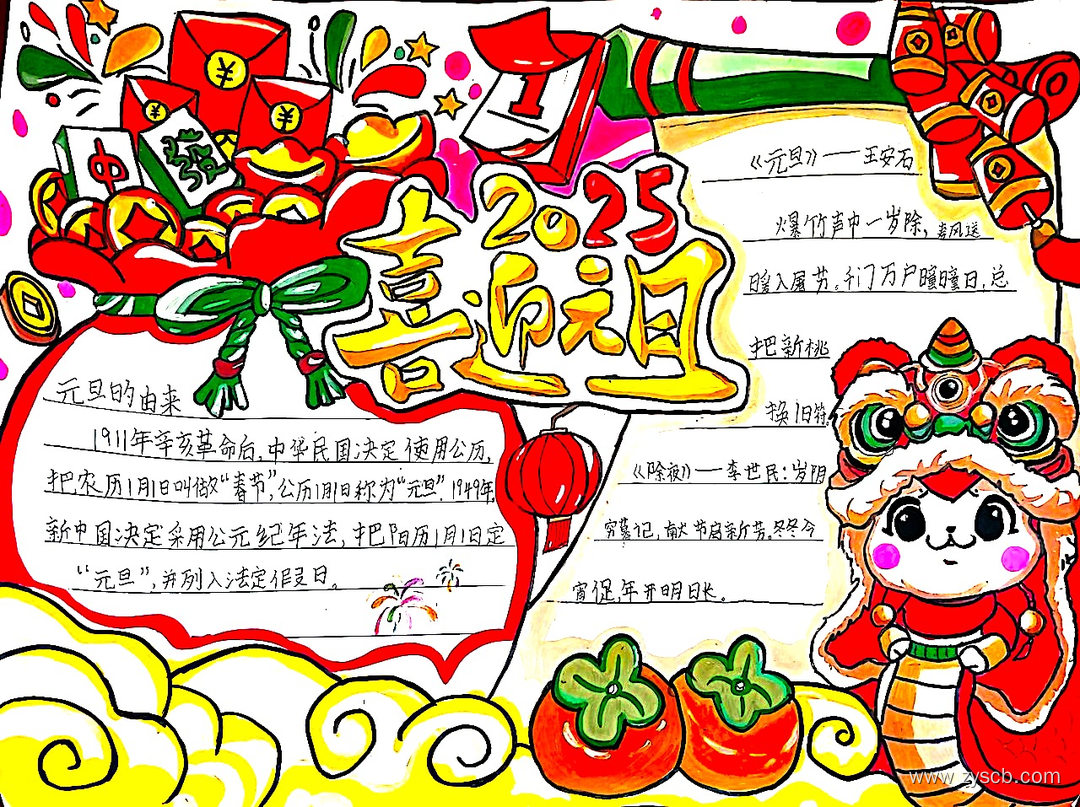 喜迎元旦
2025
1
¥
¥
¥
中
發
元旦的由来
1911年辛亥革命后,中华民国决定使用公历,
把农历1月1日叫做“春节”,公历1月1日称为“元旦”.1949年,
新中国决定采用公元纪年法,把阳历1月1日定
“元旦”,并列入法定假日。
《元旦》——王安石
爆竹声中一岁除,春风送
暖入屠苏。千门万户瞳瞳日,总
把新桃
换旧符.
《除夜》——李世民:岁阴
穷暮纪,节启新芳。冬尽今
宵促,年开明日长。
www.zyscb.com